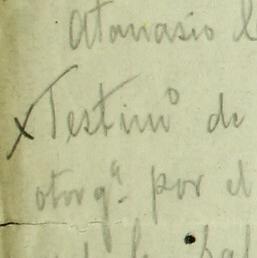 Atanasio
x Testimº de
otorgª por el